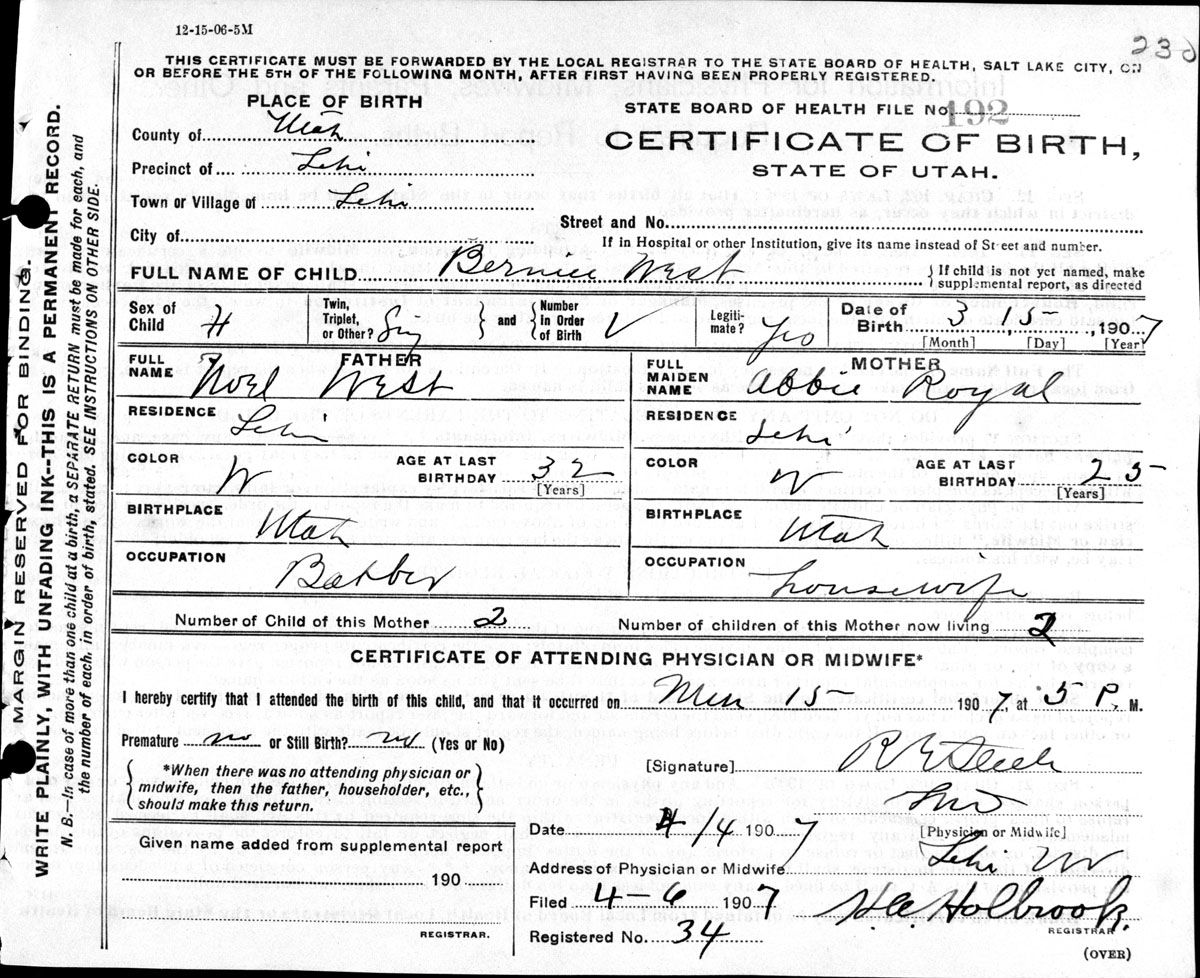 12-15-06-5M
THIS CERTIFICATE MUST BE FORWARDED BY THE LOCAL REGISTRAR TO THE STATE BOARD OF HEALTH, SALT LAKE CITY, ON
OR BEFORE THE 5TH OF THE FOLLOWING MONTH, AFTER FIRST HAVING BEEN PROPERLY REGISTERED.
PLACE OF BIRTH
County of Utah
Precinct of Lehi
Town or Village of Lehi
City of
STATE BOARD OF HEALTH FILE No. 192
CERTIFICATE OF BIRTH,
STATE OF UTAH.
Street and No.
If in Hospital or other Institution, give its name instead of Street and number.
FULL NAME OF CHILD Bernice West
If child is not yet named, make
supplemental report, as directed
Sex of Child
Twin, Triplet, or Other? Sing and Number In Order of Birth
Legitimate? Yes
Date of Birth 3 15 1907
[Month] [Day] [Year]
FATHER
FULL NAME Noel West
RESIDENCE Lehi
COLOR W AGE AT LAST BIRTHDAY 32
[Years]
BIRTHPLACE Utah
OCCUPATION Barber
MOTHER
FULL MAIDEN NAME Abbie Royal
RESIDENCE Lehi
COLOR W AGE AT LAST BIRTHDAY 25
[Years]
BIRTHPLACE Utah
OCCUPATION housewife
Number of Child of this Mother 2 Number of children of this Mother now living 2
CERTIFICATE OF ATTENDING PHYSICIAN OR MIDWIFE*
I hereby certify that I attended the birth of this child, and that it occurred on 15 1907, at 5 P. M.
Premature no or Still Birth? no (Yes or No)
*When there was no attending physician or
midwife, then the father, householder, etc.,
should make this return.
[Signature]
[Physician or Midwife]
Given name added from supplemental report
190
REGISTRAR.
Date 4/4 1907
Address of Physician or Midwife Lehi
Filed 4-6 1907
Registered No. 34
Holbrook
REGISTRAR
(OVER)
MARGIN RESERVED FOR BINDING.
WRITE PLAINLY, WITH UNFADING INK--THIS IS A PERMANENT RECORD.
N. B.--In case of more than one child at a birth, a SEPARATE RETURN must be made for each, and
the number of each, in order of birth, stated. SEE INSTRUCTIONS ON OTHER SIDE.